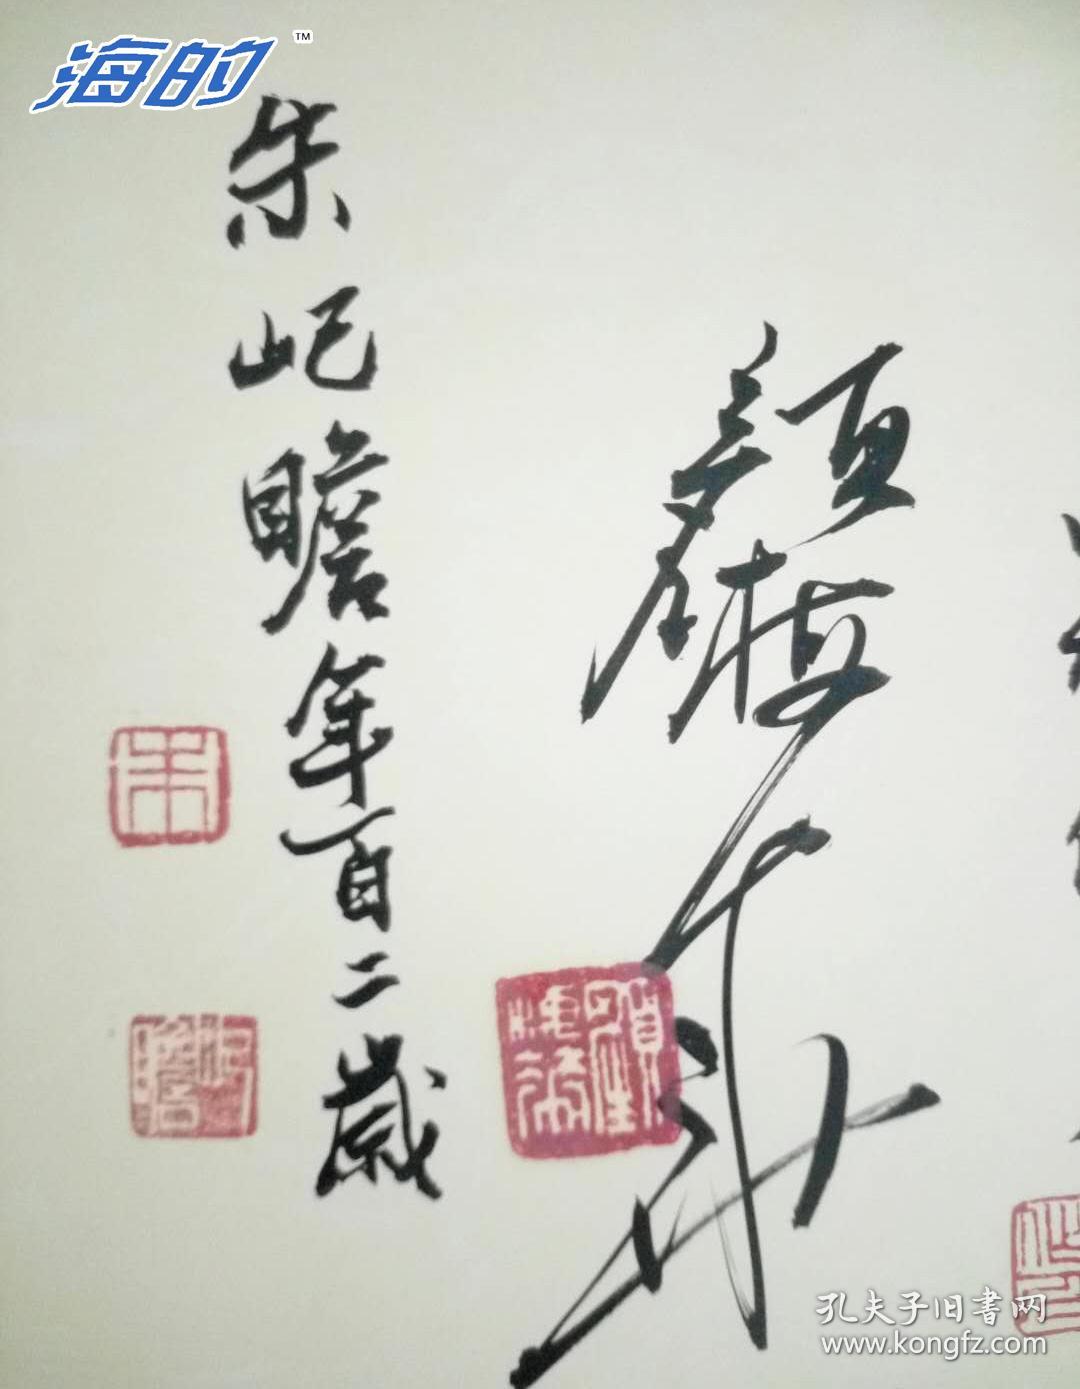 海的™
顏梅華
朱屺瞻年百二歲
朱
屺瞻
孔夫子旧書网
www.kongfz.com